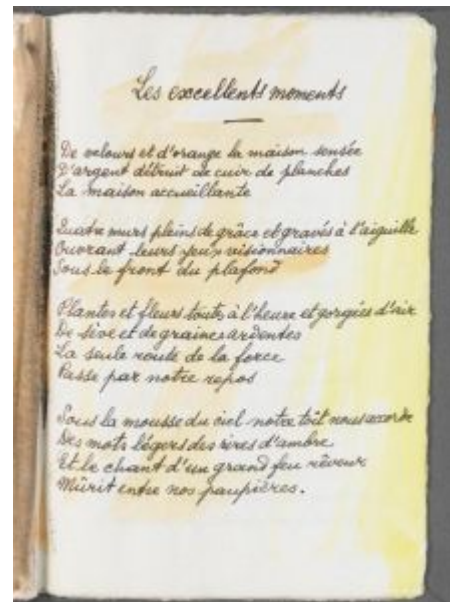 Les excellents moments
De velours et d'orange la maison sensée
D'argent détruit de cuir de planches
La maison accueillante
Quatre murs pleins de grâce et gravés à l'aiguille
Ouvrant leurs yeux visionnaires
Sous le front du plafond
Plantes et fleurs toutes à l'heure et gorgées d'air
De sève et de graines ardentes
La seule route de la force
Passe par notre repos
Sous la mousse du ciel notre toit nous accorde
Des mots légers des rires d'ambre
Et le chant d'un grand feu rêveur
Mûrit entre nos paupières.